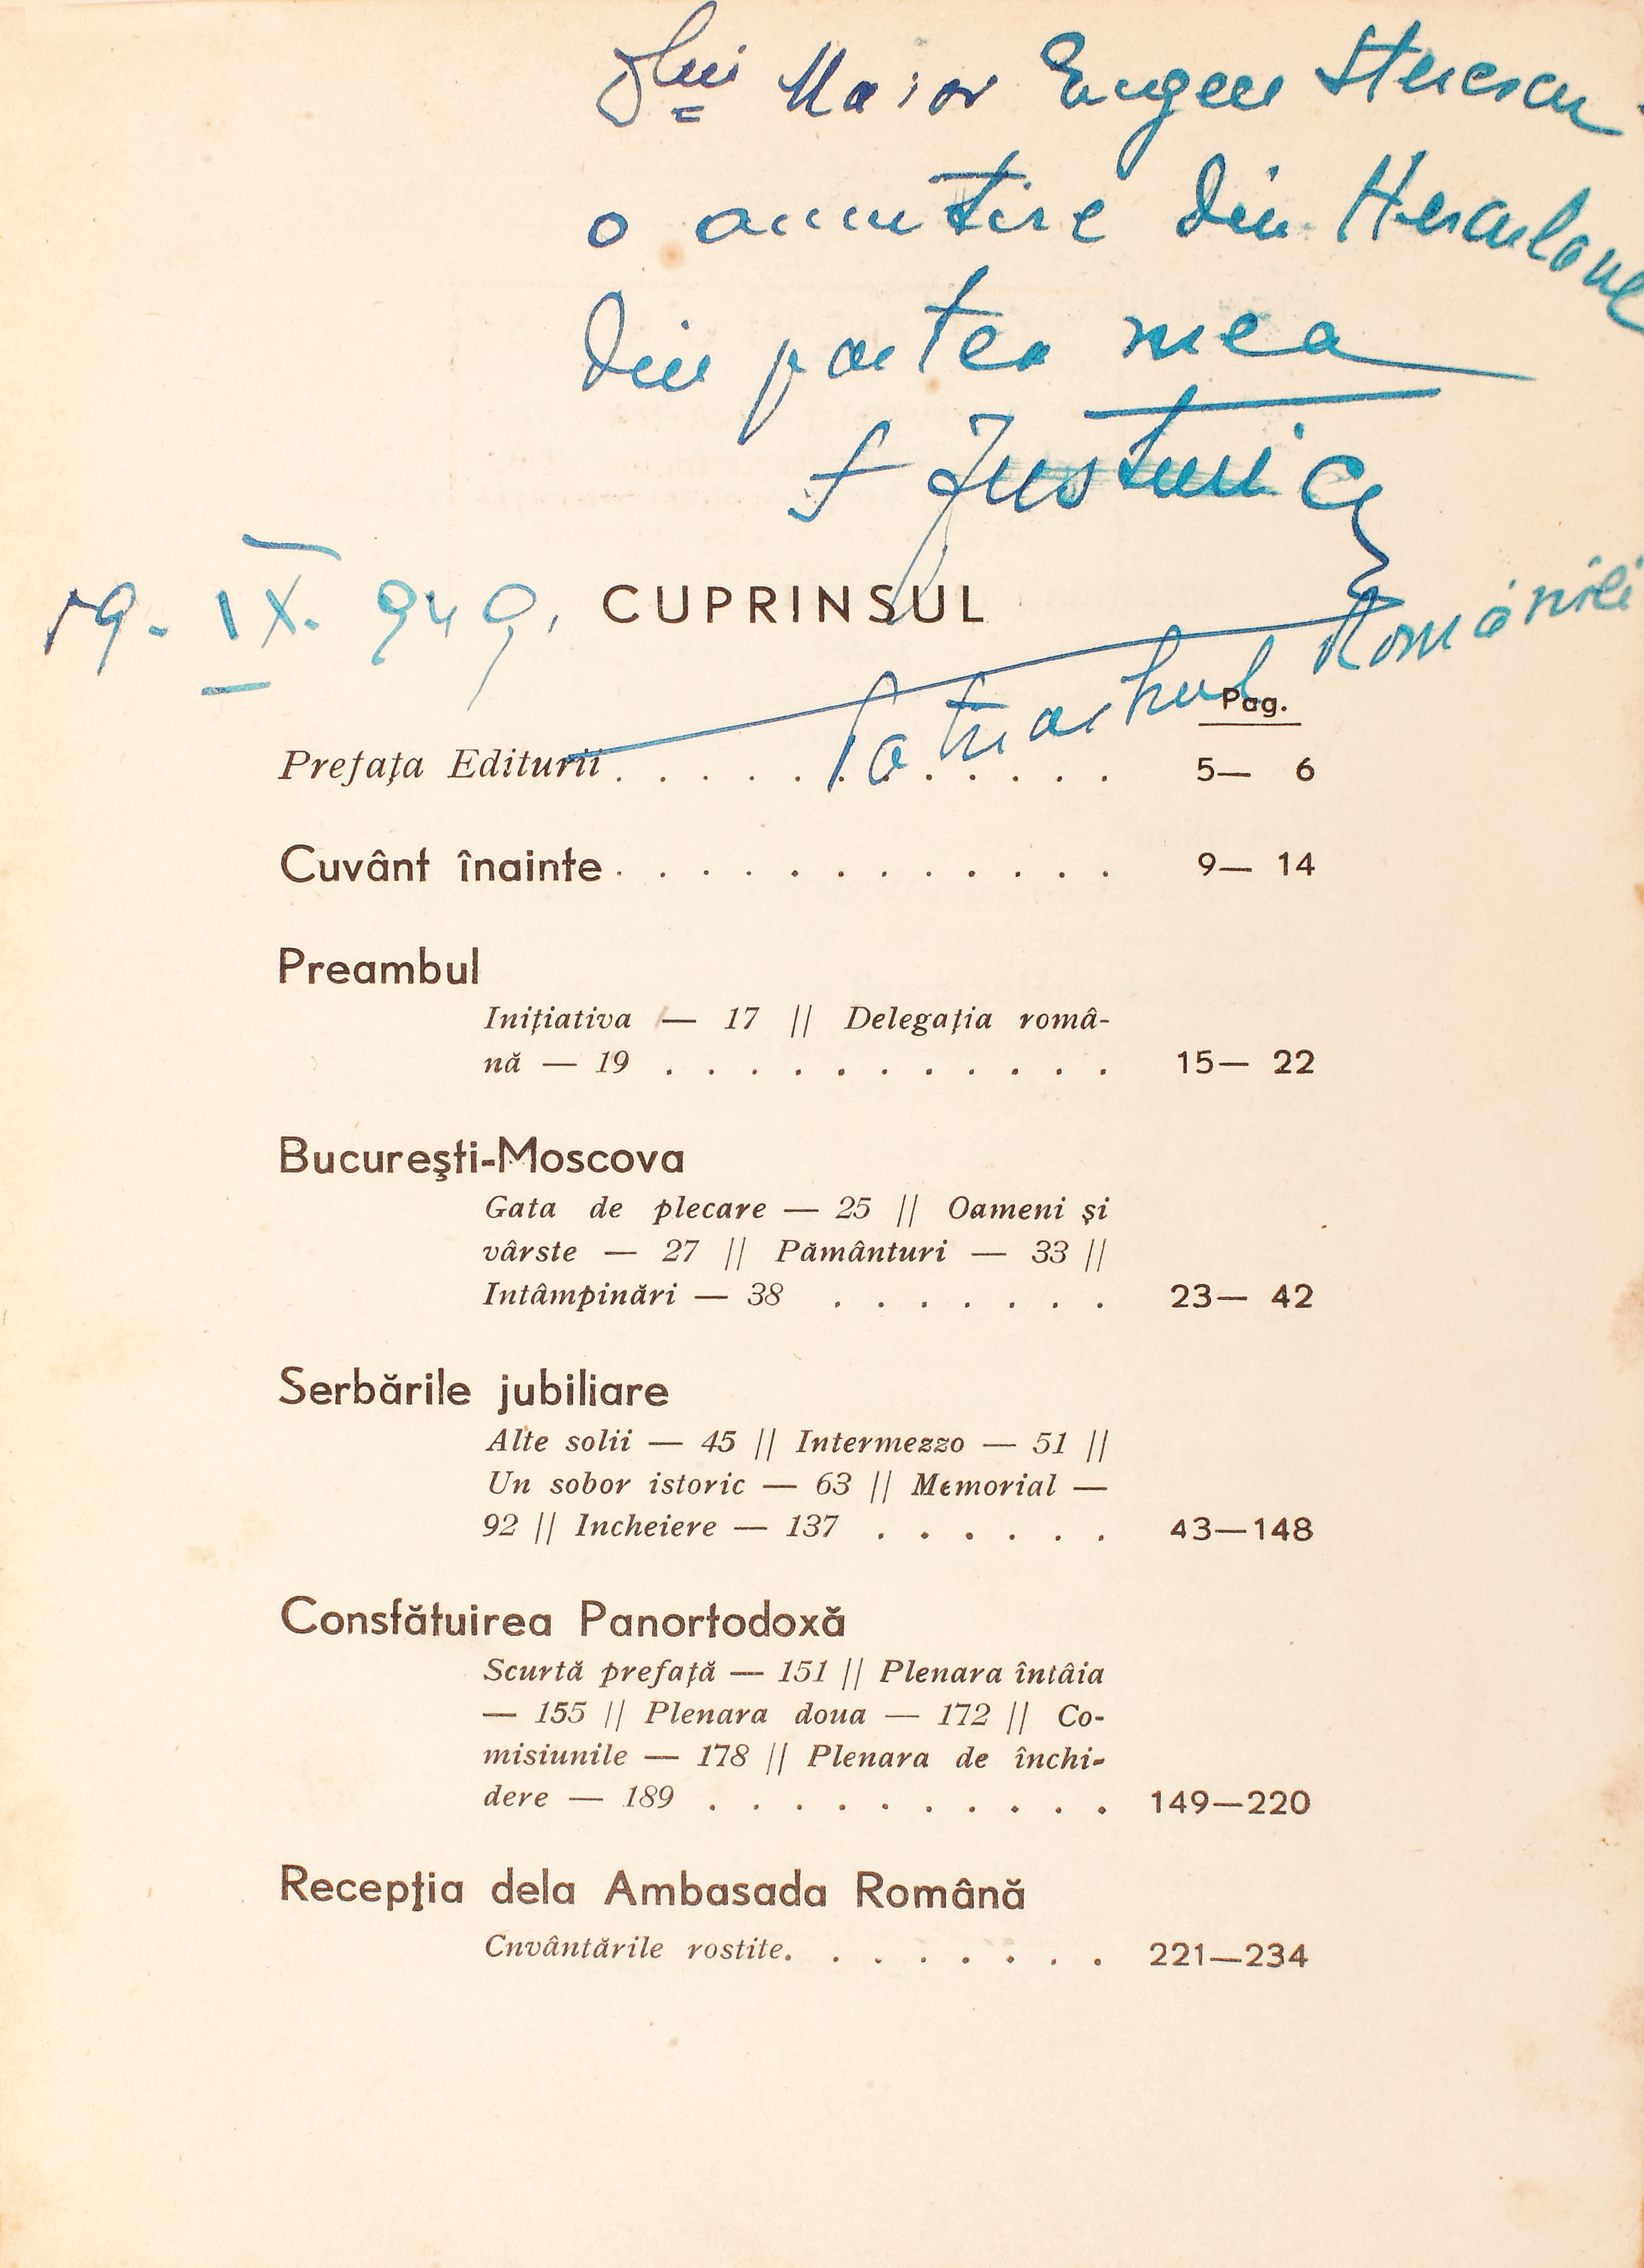 Dlui Maior Eugen Sterescu
o amintire din Herculane
din partea mea
† Justinian
19. IX. 949.
Patriarhul României
CUPRINSUL
Pag.
Prefaţa Editurii . . . . . . . . . . . . 5— 6
Cuvânt înainte . . . . . . . . . . . . 9— 14
Preambul
Iniţiativa — 17 || Delegaţia româ-
nă — 19 . . . . . . . . . . . 15— 22
Bucureşti-Moscova
Gata de plecare — 25 || Oameni şi
vârste — 27 || Pământuri — 33 ||
Intâmpinări — 38 . . . . . . . 23— 42
Serbările jubiliare
Alte solii — 45 || Intermezzo — 51 ||
Un sobor istoric — 63 || Memorial —
92 || Incheiere — 137 . . . . . . 43—148
Consfătuirea Panortodoxă
Scurtă prefaţă — 151 || Plenara întâia
— 155 || Plenara doua — 172 || Co-
misiunile — 178 || Plenara de închi-
dere — 189 . . . . . . . . . . 149—220
Recepţia dela Ambasada Română
Cnvântările rostite. . . . . . . . 221—234